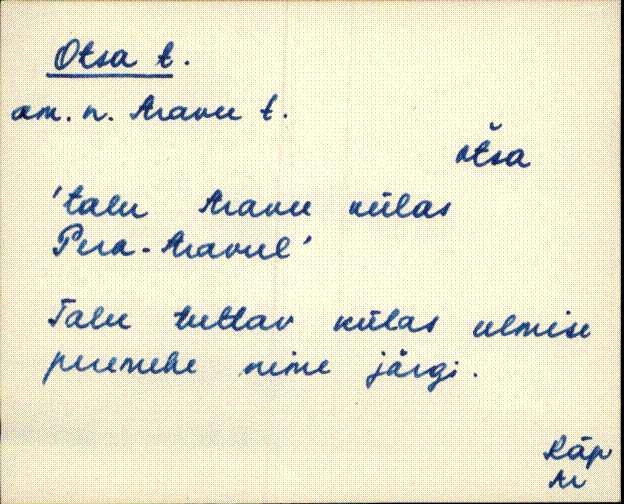 Otsa t.
am. n. Aravu t.
otša
'talu Aravu külas
Pera-Aravul'
Talu tuttav külas
peremehe nime järgi.
Räp
Ar